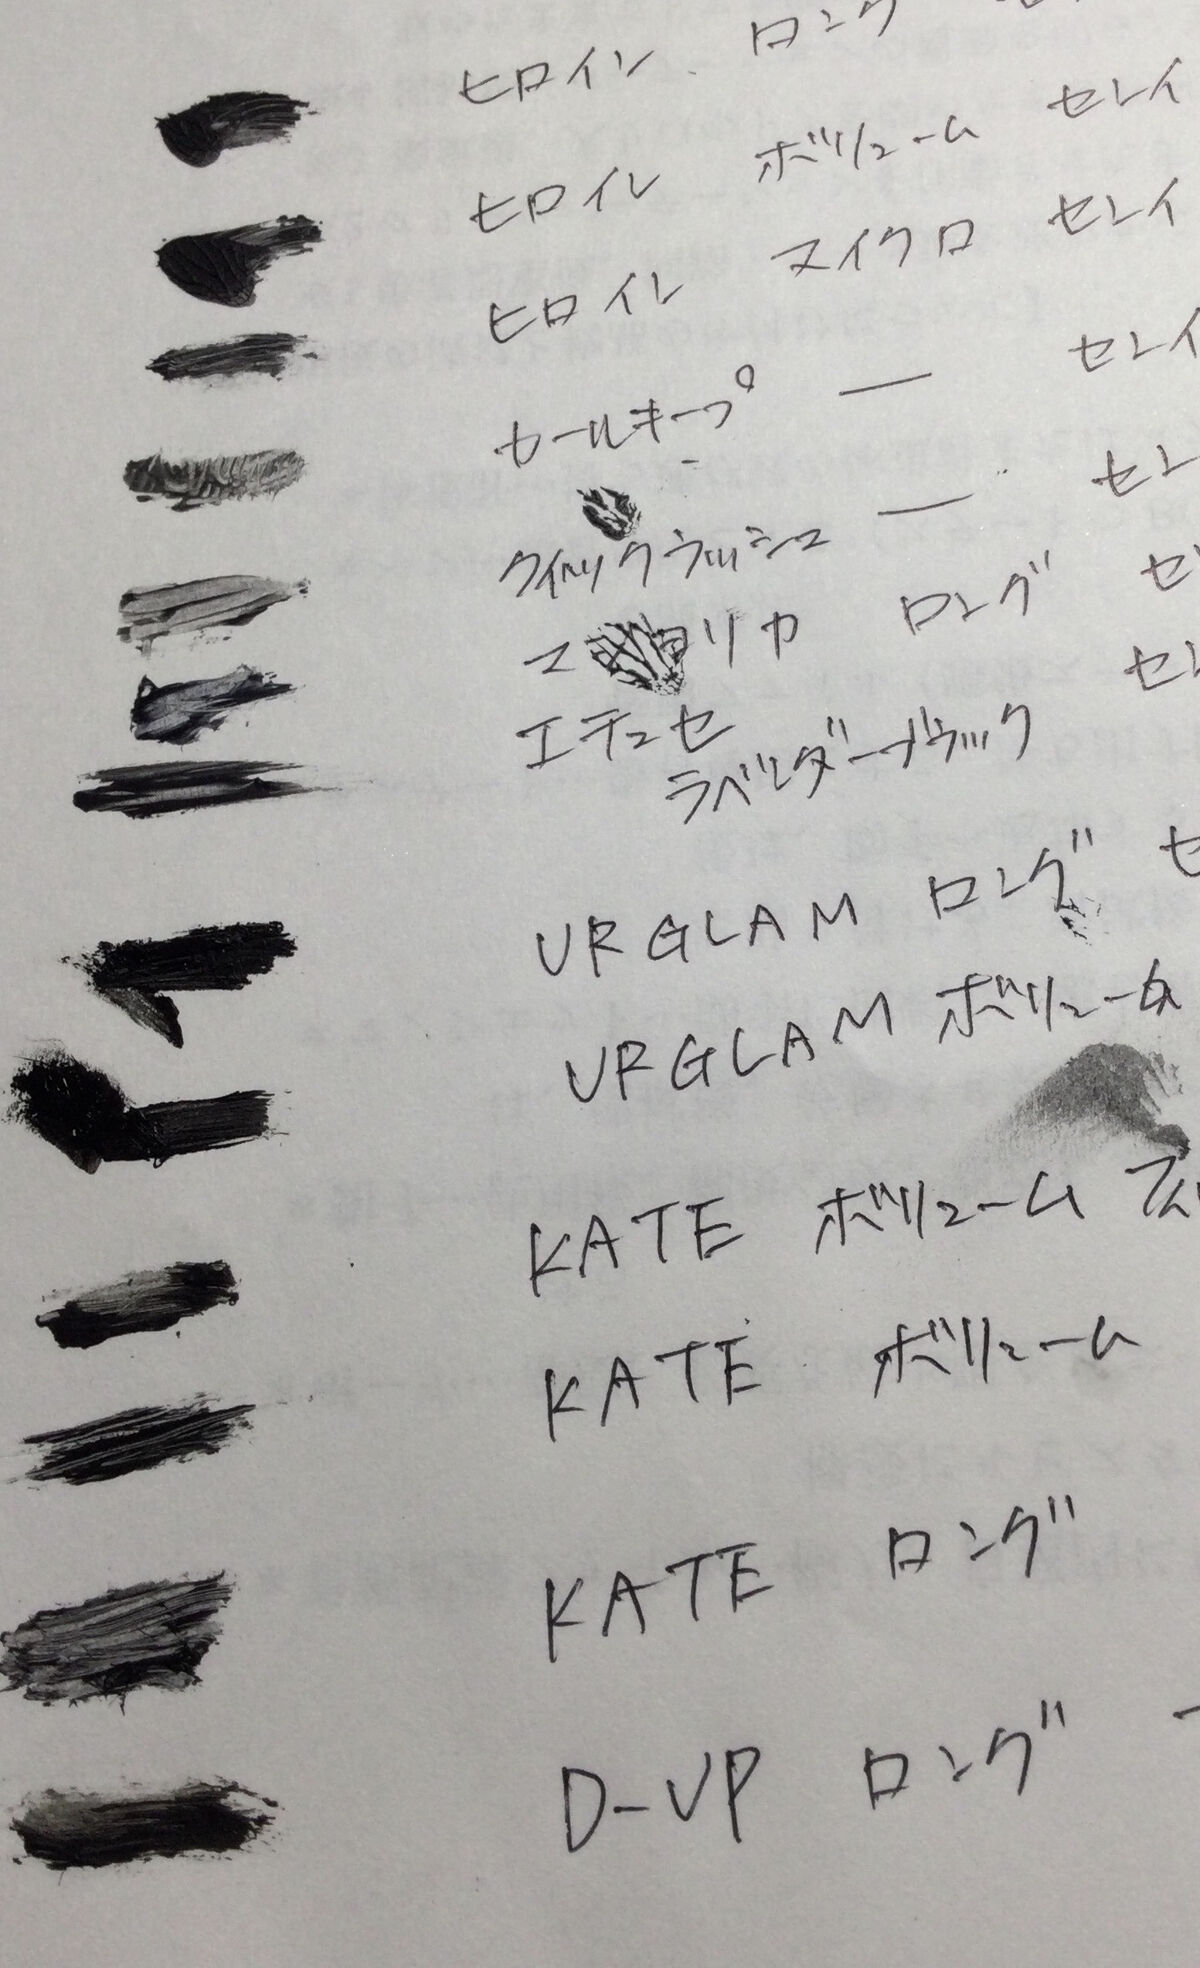 ヒロイン ロング
ヒロイン ボリューム セレイ
ヒロイン マイクロ セレイ
カールキープ — セレイ
クイックラッシュ — セレ
リカ ロング セ
エテュセ セレ
ラベンダーブラック
URGLAM ロング セ
URGLAM ボリューム
KATE ボリューム
KATE ボリューム
KATE ロング
D-UP ロング